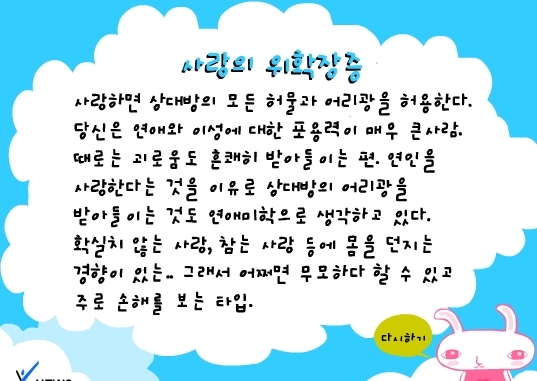 사랑의 위확장증
사랑하면 상대방의 모든 허물과 어리광을 허용한다.
당신은 연애와 이성에 대한 포용력이 매우 큰사람.
때로는 괴로움도 흔쾌히 받아들이는 편. 연인을
사랑한다는 것을 이유로 상대방의 어리광을
받아들이는 것도 연애미학으로 생각하고 있다.
확실치 않는 사랑, 참는 사랑 등에 몸을 던지는
경향이 있는.. 그래서 어쩌면 무모하다 할 수 있고
주로 손해를 보는 타입.
다시하기